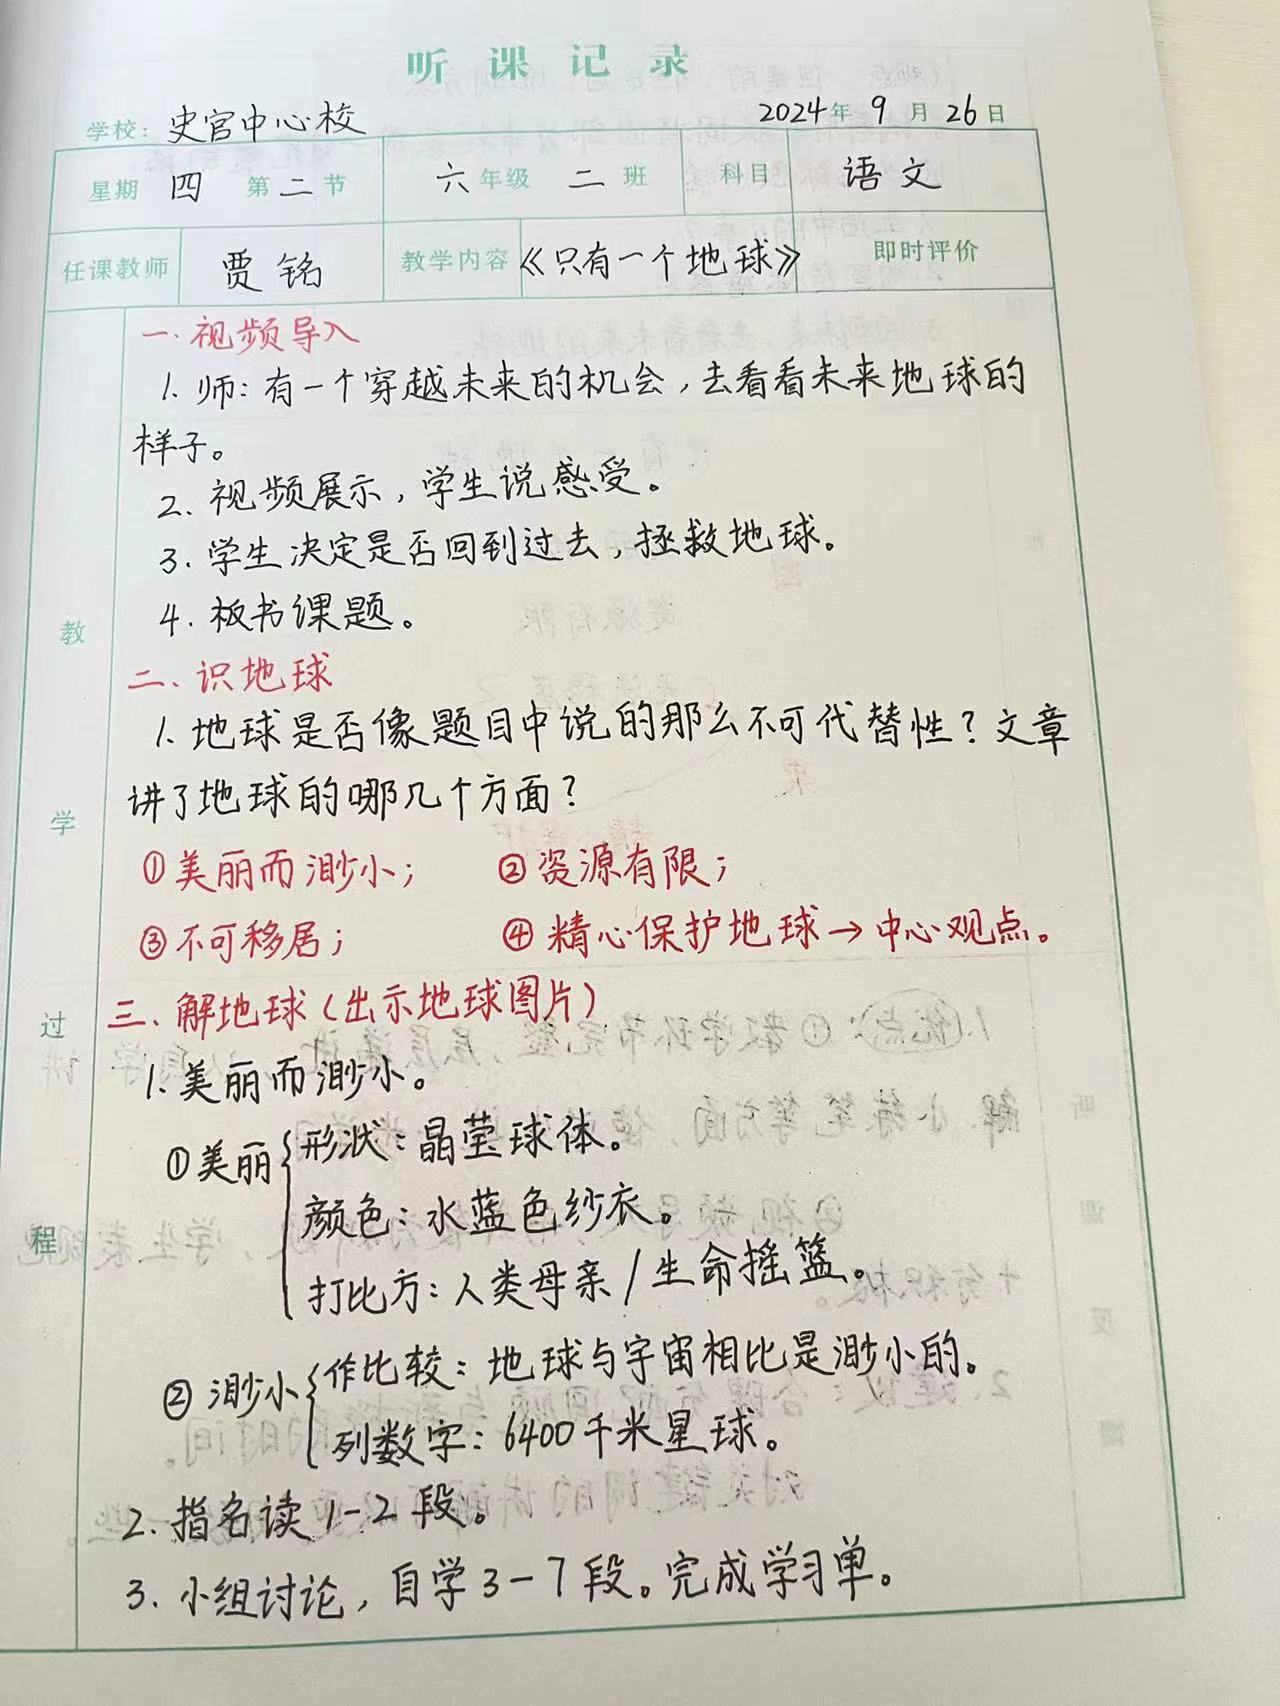 听课记录
学校：史官中心校 2024年9月26日
星期 四 第二节 六年级 二班 科目 语文
任课教师 贾铭 教学内容 《只有一个地球》 即时评价
教学过程
一.视频导入
1.师：有一个穿越未来的机会，去看看未来地球的
样子。
2.视频展示，学生说感受。
3.学生决定是否回到过去，拯救地球。
4.板书课题。
二、识地球
1.地球是否像题目中说的那么不可代替性？文章
讲了地球的哪几个方面？
①美丽而渺小； ②资源有限；
③不可移居； ④精心保护地球→中心观点。
三、解地球（出示地球图片）
1.美丽而渺小。
①美丽 形状：晶莹球体。
颜色：水蓝色纱衣。
打比方：人类母亲/生命摇篮。
②渺小 作比较：地球与宇宙相比是渺小的。
列数字：6400千米星球。
2.指名读1-2段。
3.小组讨论，自学3-7段。完成学习单。